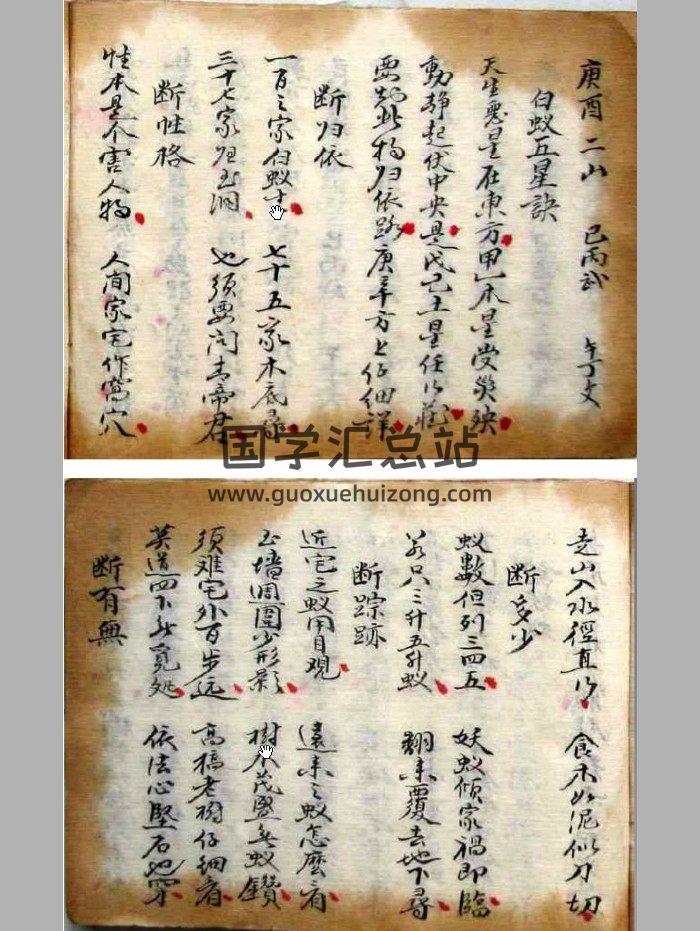 庚酉二山 己丙武 午丁文
白蚁五星訣
天生惡星在東方甲乙木星受災殃
動静起伏中央是戊己土星任
要知此物归依路庚辛方上仔细詳
断归依
一百之家白蚁 七十五家木底尋
三十七家 也须要问青帝君
断性格
性本是个害人物 人间家宅作窩穴
国学汇总站
www.guoxuehuizong.com
走山入水徑直 食木如泥似刀切
断多少
蚁數但列三四五 妖蚁倾家禍即臨
若只三升五升蚁 翻来覆去地下尋
断踪跡
近宅之蚁用目观 遠来之蚁怎麽看
土墙周圍少形影 樹木茂盛是蚁鑽
须難宅外百步远 高橋老樹仔细看
莫道四下無覓処 依法心堅石也穿
断有無